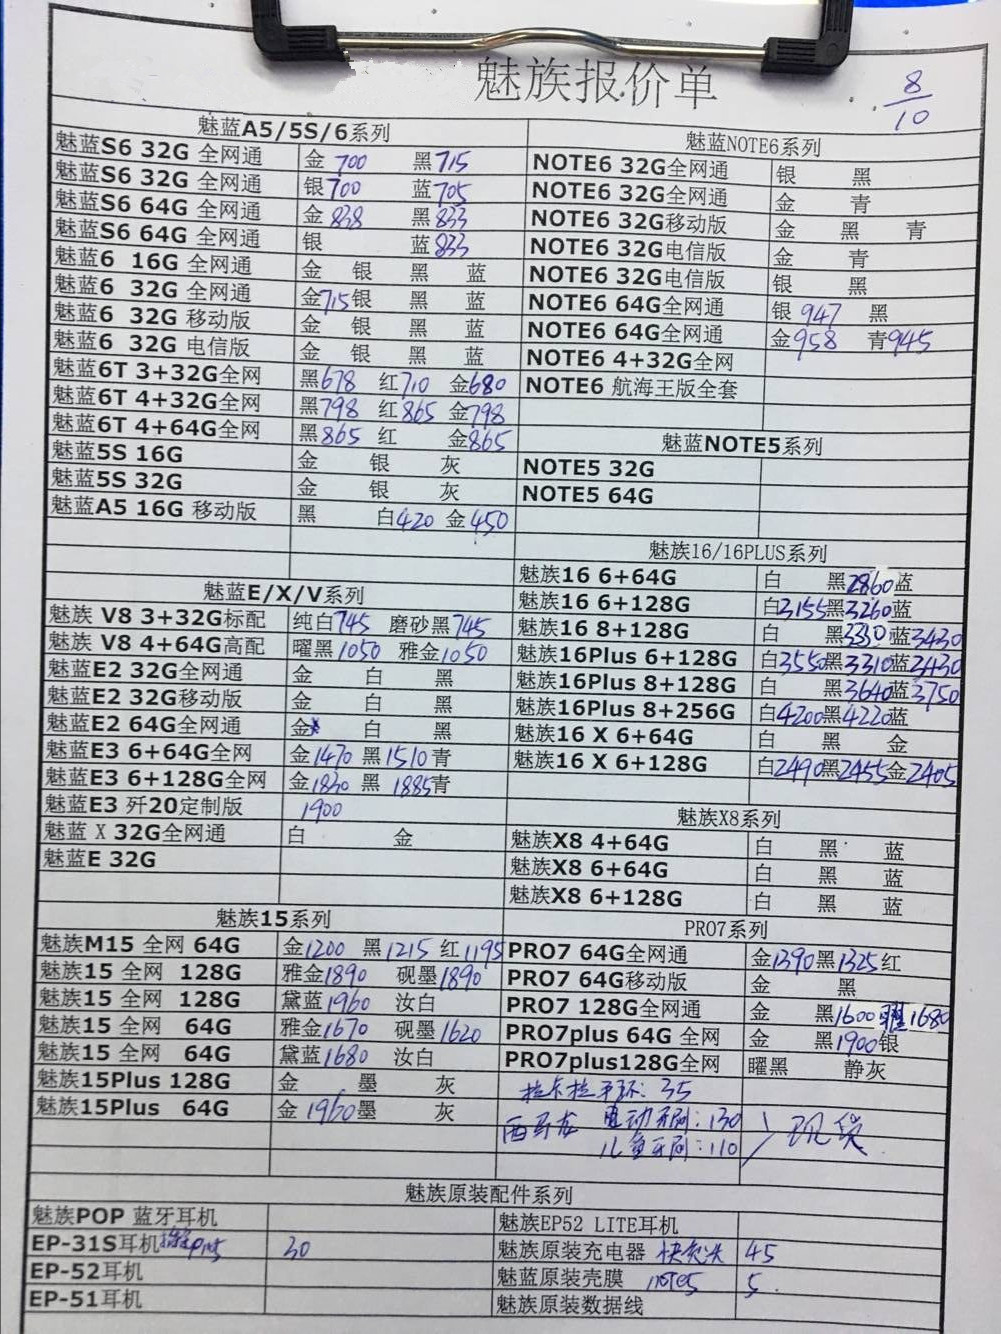 魅族报价单
8/10
魅蓝A5/5S/6系列
魅蓝S6 32G 全网通 金 700 黑 715
魅蓝S6 32G 全网通 银 700 蓝 705
魅蓝S6 64G 全网通 金 838 黑 833
魅蓝S6 64G 全网通 银 蓝 833
魅蓝6 16G 全网通 金 银 黑 蓝
魅蓝6 32G 全网通 金 715 银 黑 蓝
魅蓝6 32G 移动版 金 银 黑 蓝
魅蓝6 32G 电信版 金 银 黑 蓝
魅蓝6T 3+32G全网 黑 678 红 710 金 680
魅蓝6T 4+32G全网 黑 798 红 865 金 798
魅蓝6T 4+64G全网 黑 865 红 金 865
魅蓝5S 16G 金 银 灰
魅蓝5S 32G 金 银 灰
魅蓝A5 16G 移动版 黑 白 420 金 450
魅蓝E/X/V系列
魅族 V8 3+32G标配 纯白 745 磨砂黑 745
魅族 V8 4+64G高配 曜黑 1050 雅金 1050
魅蓝E2 32G全网通 金 白 黑
魅蓝E2 32G移动版 金 白 黑
魅蓝E2 64G全网通 金 白 黑
魅蓝E3 6+64G全网 金 1470 黑 1510 青
魅蓝E3 6+128G全网 金 1830 黑 1885 青
魅蓝E3 歼20定制版 1900
魅蓝 X 32G全网通 白 金
魅蓝E 32G
魅族15系列
魅族M15 全网 64G 金 1200 黑 1215 红 1195
魅族15 全网 128G 雅金 1890 砚墨 1890
魅族15 全网 128G 黛蓝 1960 汝白
魅族15 全网 64G 雅金 1670 砚墨 1620
魅族15 全网 64G 黛蓝 1680 汝白
魅族15Plus 128G 金 墨 灰
魅族15Plus 64G 金 1960 墨 灰
魅蓝NOTE6系列
NOTE6 32G全网通 银 黑
NOTE6 32G全网通 金 青
NOTE6 32G移动版 金 黑 青
NOTE6 32G电信版 金 青
NOTE6 32G电信版 银 黑
NOTE6 64G全网通 银 947 黑
NOTE6 64G全网通 金 958 青 945
NOTE6 4+32G全网
NOTE6 航海王版全套
魅蓝NOTE5系列
NOTE5 32G
NOTE5 64G
魅族16/16PLUS系列
魅族16 6+64G 白 黑 2860 蓝
魅族16 6+128G 白 3155 黑 3260 蓝
魅族16 8+128G 白 黑 3330 蓝 3430
魅族16Plus 6+128G 白 3550 黑 3310 蓝 2430
魅族16Plus 8+128G 白 黑 3640 蓝 3750
魅族16Plus 8+256G 白 4200 黑 4220 蓝
魅族16 X 6+64G 白 黑 金
魅族16 X 6+128G 白 2490 黑 2455 金 2405
魅族X8系列
魅族X8 4+64G 白 黑 蓝
魅族X8 6+64G 白 黑 蓝
魅族X8 6+128G 白 黑 蓝
PRO7系列
PRO7 64G全网通 金 1390 黑 1325 红
PRO7 64G移动版 金 黑
PRO7 128G全网通 金 黑 1600 1680
PRO7plus 64G 全网 金 黑 1900 银
PRO7plus128G全网 曜黑 静灰
拉卡拉手环: 35
西马龙 电动牙刷: 130
儿童牙刷: 110
现货
魅族原装配件系列
魅族POP 蓝牙耳机
EP-31S耳机 30
EP-52耳机
EP-51耳机
魅族EP52 LITE耳机
魅族原装充电器 快充头 45
魅蓝原装壳膜 note5 5
魅族原装数据线